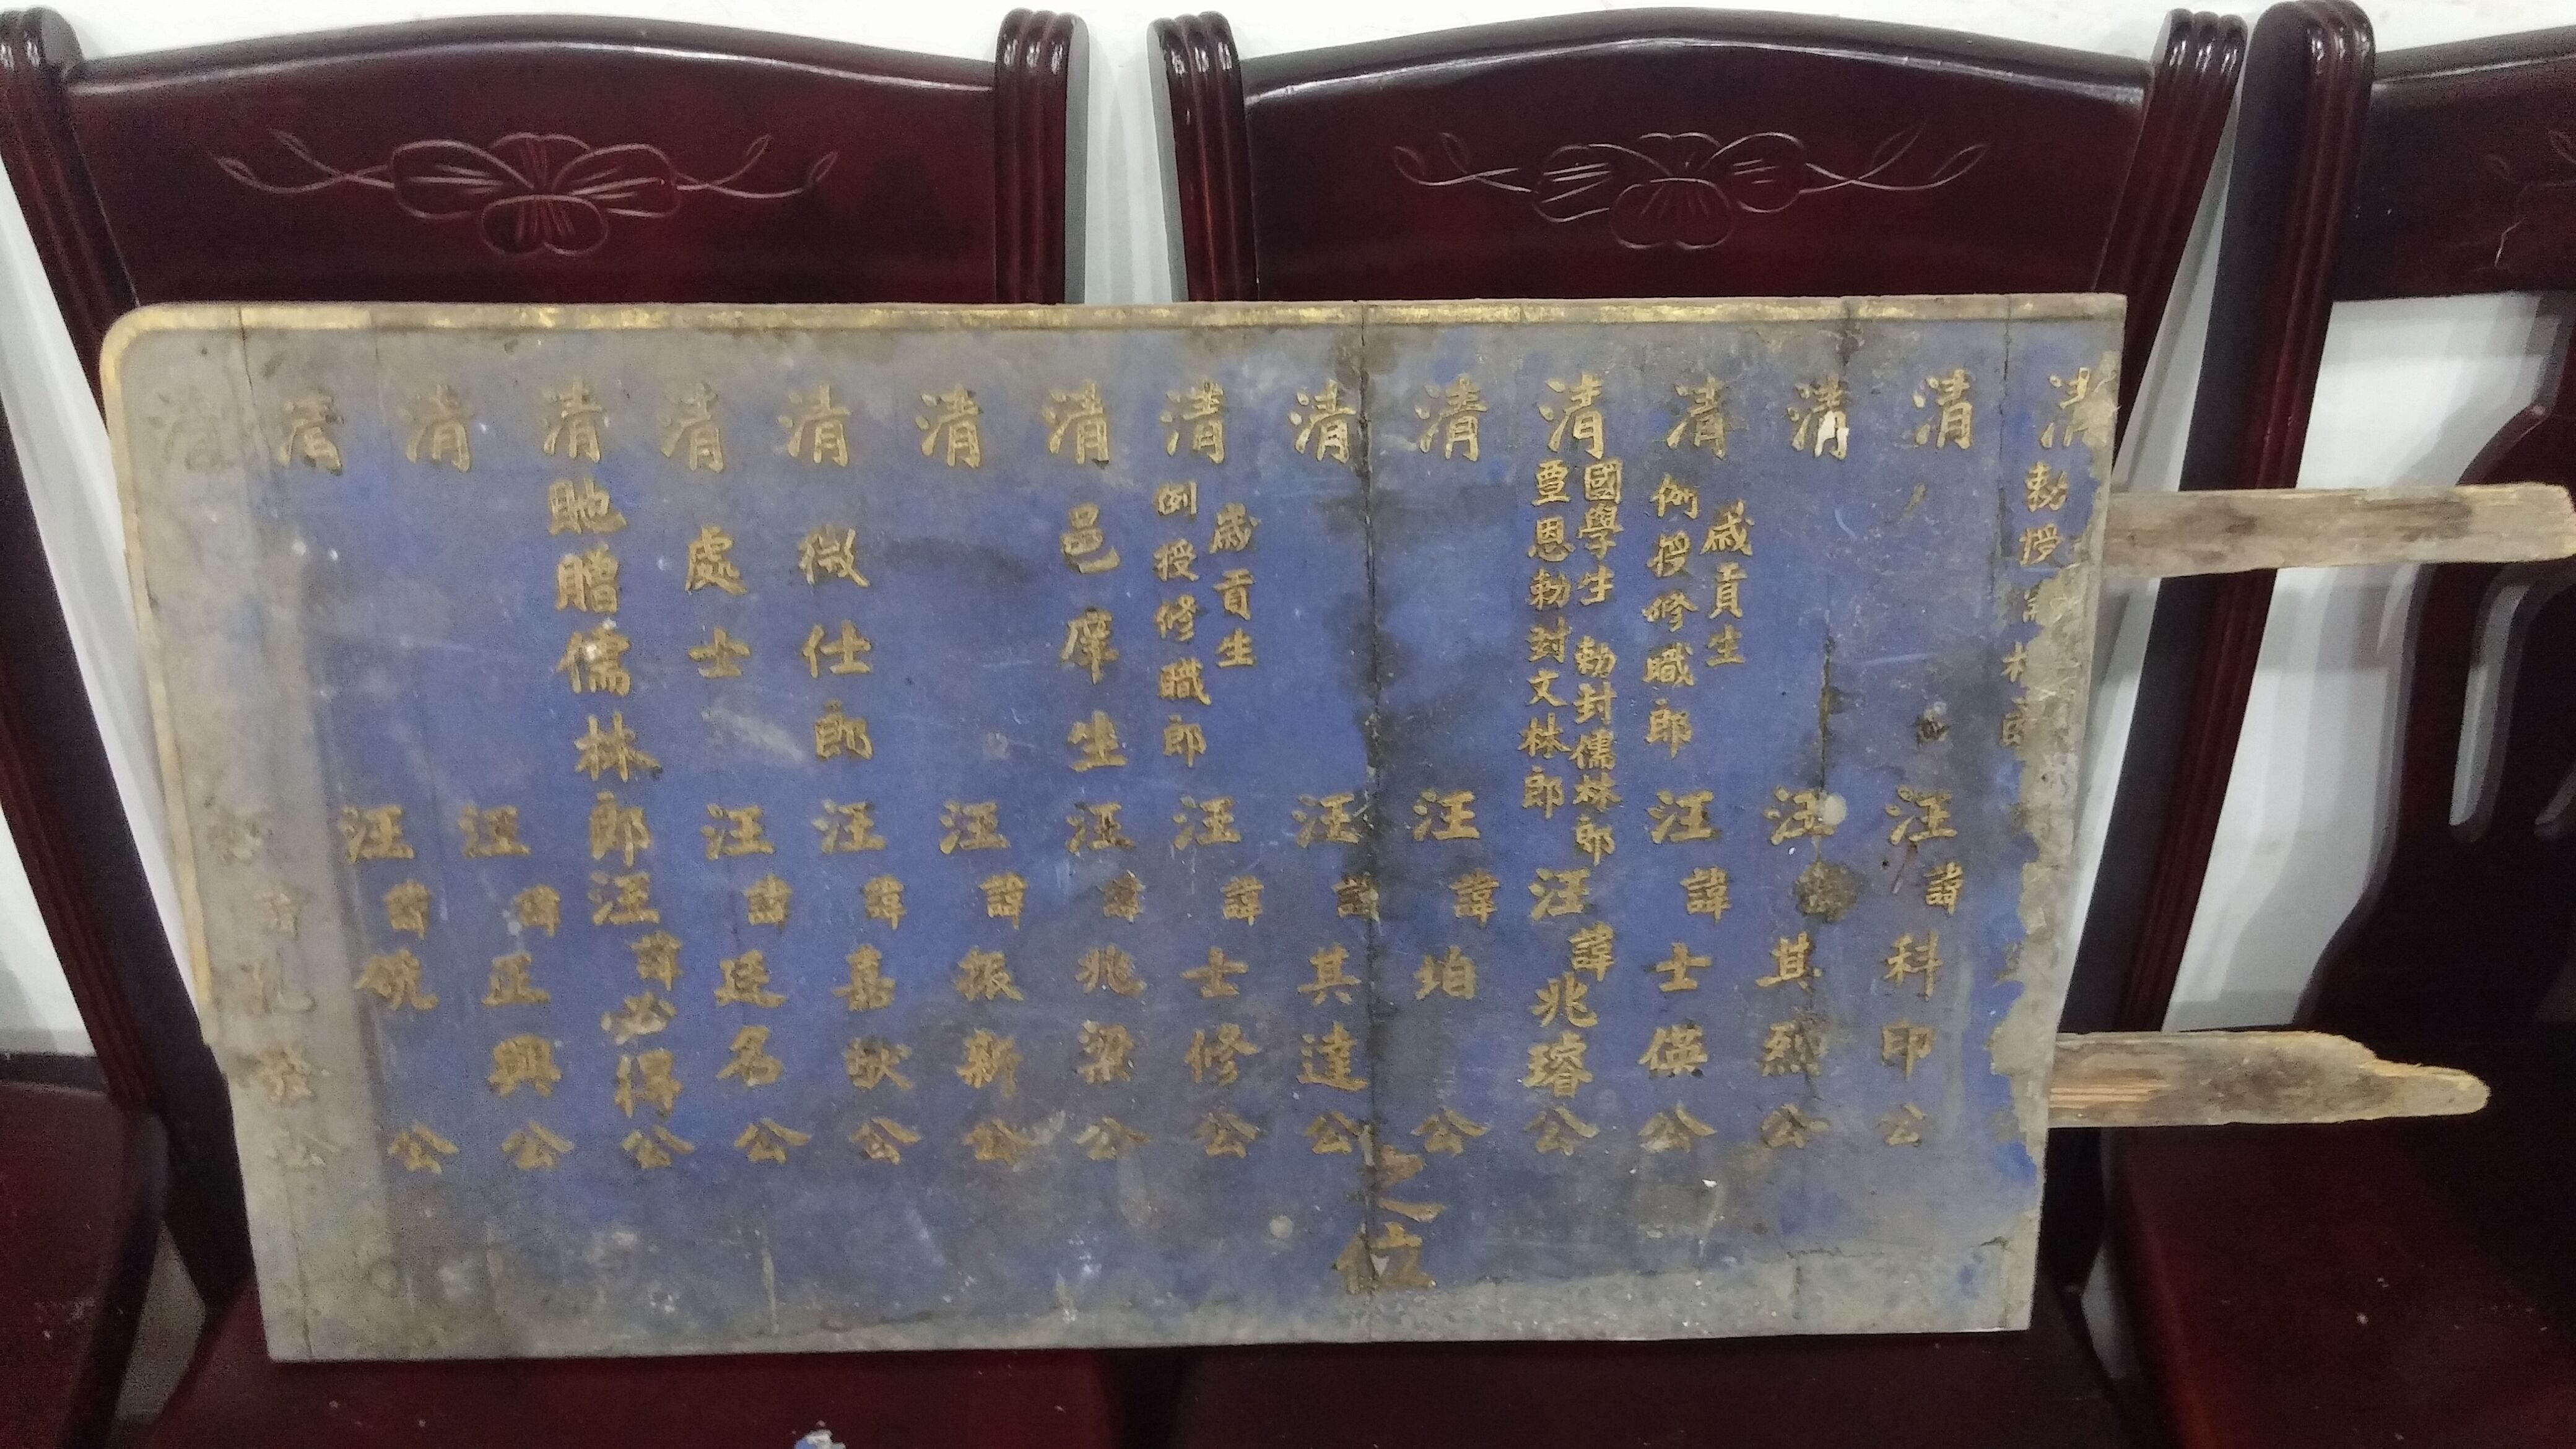 清 勅授
清 汪諱科印公
清 汪諱其烈公
清 歲貢生 例授修職郎 汪諱士偀公
清 國學生 勅封儒林郎 覃恩勅封文林郎 汪諱兆璿公
清 汪諱珀公
清 汪諱其達公
之位
清 歲貢生 例授修職郎 汪諱士修公
清 邑庠生 汪諱兆梁公
清 汪諱振新公
清 微仕郎 汪諱嘉猷公
清 處士 汪諱廷名公
清 貤贈儒林郎 汪諱必得公
清 汪諱正興公
清 汪諱公
清 諱公